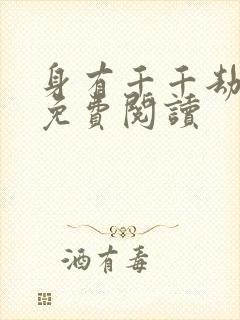 身有千千劫
免費閱讀
酒有毒